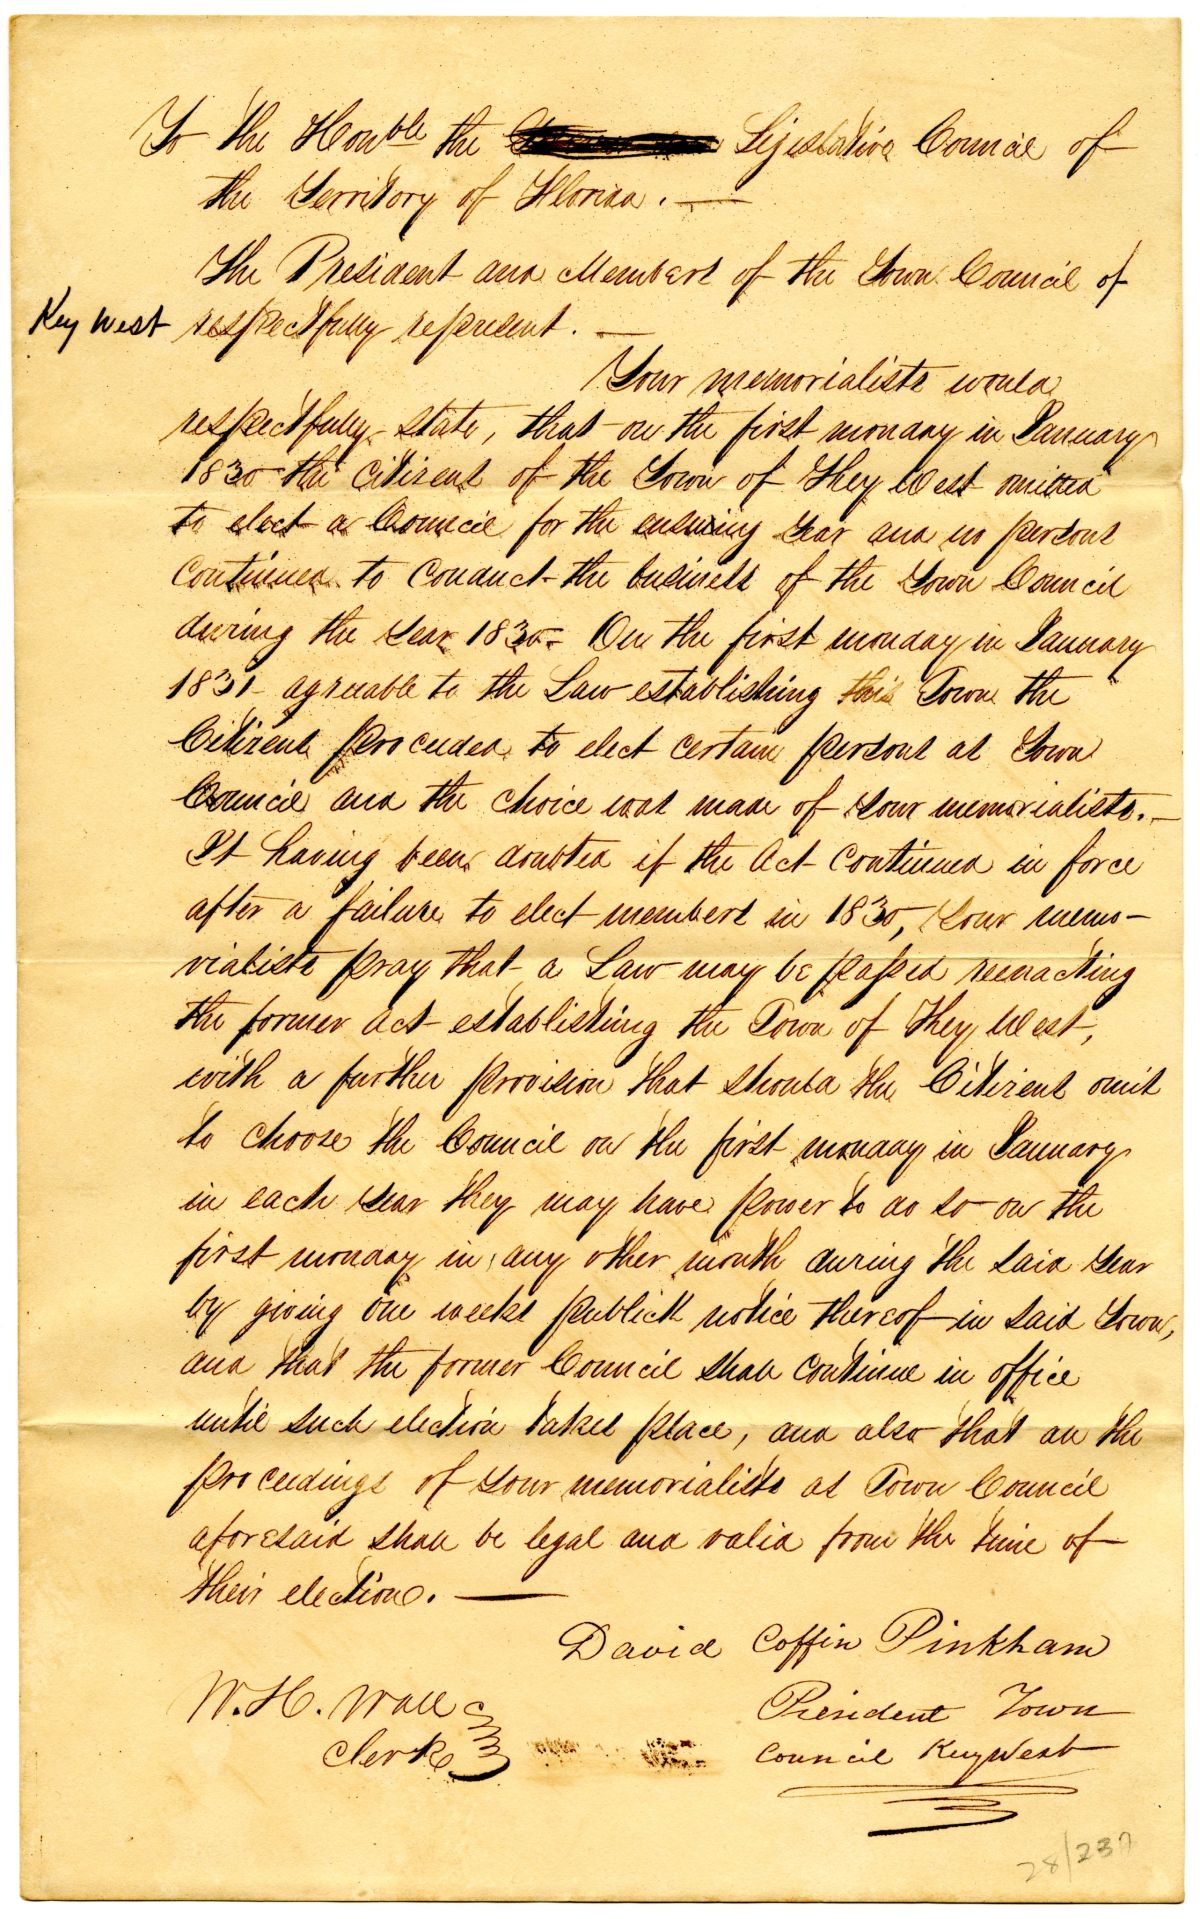 To the Honble the Legislative Council of
the Territory of Florida. —
The President and Members of the Town Council of
Key West respectfully represent. —
Your memorialists would
respectfully state, that on the first monday in January
1830 the Citizens of the Town of Key West omitted
to elect a Council for the ensuing year and no persons
continued to conduct the business of the Town Council
during the year 1830. On the first monday in January
1831 agreeable to the Law establishing this Town the
Citizens proceeded to elect certain persons as Town
Council and the choice was made of your memorialists. —
It having been doubted if the Act continued in force
after a failure to elect members in 1830, your memo-
rialists pray that a Law may be passed reenacting
the former act establishing the Town of Key West,
with a further provision that should the Citizens omit
to choose the Council on the first monday in January
in each year they may have power to do so on the
first monday in any other month during the said year
by giving one weeks publick notice thereof in said Town,
and that the former Council shall continue in office
until such election takes place, and also that all the
proceedings of your memorialists as Town Council
aforesaid shall be legal and valid from the time of
their election. —
David Coffin Pinkham
President Town
Council Key West
W. H. Wall
Clerk
28/237